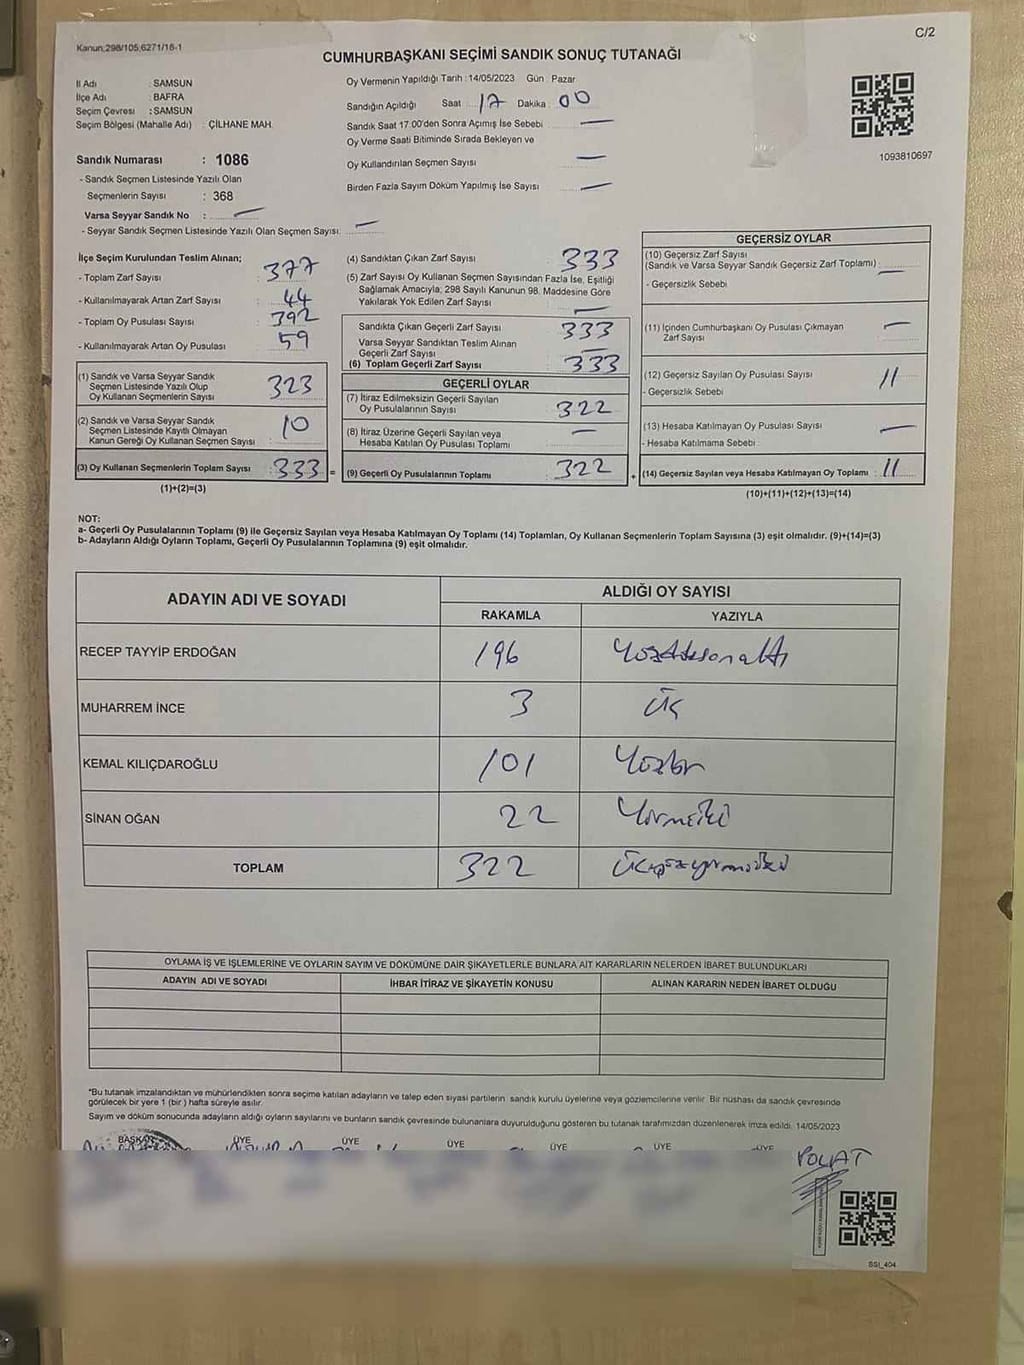 Kanun;298/105;6271/18-1
C/2
CUMHURBAŞKANI SEÇİMİ SANDIK SONUÇ TUTANAĞI
İl Adı : SAMSUN
İlçe Adı : BAFRA
Seçim Çevresi : SAMSUN
Seçim Bölgesi (Mahalle Adı) : ÇİLHANE MAH.
Sandık Numarası : 1086
- Sandık Seçmen Listesinde Yazılı Olan
Seçmenlerin Sayısı : 368
Varsa Seyyar Sandık No : —
- Seyyar Sandık Seçmen Listesinde Yazılı Olan Seçmen Sayısı: —
Oy Vermenin Yapıldığı Tarih : 14/05/2023 Gün : Pazar
Sandığın Açıldığı Saat 17 Dakika 00
Sandık Saat 17:00'den Sonra Açımış İse Sebebi —
Oy Verme Saati Bitiminde Sırada Bekleyen ve
Oy Kullandırılan Seçmen Sayısı —
Birden Fazla Sayım Döküm Yapılmış İse Sayısı —
1093810697
İlçe Seçim Kurulundan Teslim Alınan;
- Toplam Zarf Sayısı : 377
- Kullanılmayarak Artan Zarf Sayısı : 44
- Toplam Oy Pusulası Sayısı : 392
- Kullanılmayarak Artan Oy Pusulası : 59
(1) Sandık ve Varsa Seyyar Sandık
Seçmen Listesinde Yazılı Olup
Oy Kullanan Seçmenlerin Sayısı 323
(2) Sandık ve Varsa Seyyar Sandık
Seçmen Listesinde Kayıtlı Olmayan
Kanun Gereği Oy Kullanan Seçmen Sayısı : 10
(3) Oy Kullanan Seçmenlerin Toplam Sayısı : 333 =
(1)+(2)=(3)
(4) Sandıktan Çıkan Zarf Sayısı 333
(5) Zarf Sayısı Oy Kullanan Seçmen Sayısından Fazla İse, Eşitliği
Sağlamak Amacıyla; 298 Sayılı Kanunun 98. Maddesine Göre
Yakılarak Yok Edilen Zarf Sayısı —
Sandıkta Çıkan Geçerli Zarf Sayısı 333
Varsa Seyyar Sandıktan Teslim Alınan
Geçerli Zarf Sayısı —
(6) Toplam Geçerli Zarf Sayısı 333
GEÇERLİ OYLAR
(7) İtiraz Edilmeksizin Geçerli Sayılan
Oy Pusulalarının Sayısı 322
(8) İtiraz Üzerine Geçerli Sayılan veya
Hesaba Katılan Oy Pusulası Toplamı —
(9) Geçerli Oy Pusulalarının Toplamı 322 +
GEÇERSİZ OYLAR
(10) Geçersiz Zarf Sayısı
(Sandık ve Varsa Seyyar Sandık Geçersiz Zarf Toplamı) : —
- Geçersizlik Sebebi
(11) İçinden Cumhurbaşkanı Oy Pusulası Çıkmayan
Zarf Sayısı —
(12) Geçersiz Sayılan Oy Pusulası Sayısı 11
- Geçersizlik Sebebi
(13) Hesaba Katılmayan Oy Pusulası Sayısı —
- Hesaba Katılmama Sebebi
(14) Geçersiz Sayılan veya Hesaba Katılmayan Oy Toplamı : 11
(10)+(11)+(12)+(13)=(14)
NOT:
a- Geçerli Oy Pusulalarının Toplamı (9) ile Geçersiz Sayılan veya Hesaba Katılmayan Oy Toplamı (14) Toplamları, Oy Kullanan Seçmenlerin Toplam Sayısına (3) eşit olmalıdır. (9)+(14)=(3)
b- Adayların Aldığı Oyların Toplamı, Geçerli Oy Pusulalarının Toplamına (9) eşit olmalıdır.
ADAYIN ADI VE SOYADI
ALDIĞI OY SAYISI
RAKAMLA YAZIYLA
RECEP TAYYİP ERDOĞAN 196
MUHARREM İNCE 3 Üç
KEMAL KILIÇDAROĞLU 101 Yüzbir
SİNAN OĞAN 22 Yirmiiki
TOPLAM 322 Üçyüzyirmiiki
OYLAMA İŞ VE İŞLEMLERİNE VE OYLARIN SAYIM VE DÖKÜMÜNE DAİR ŞİKAYETLERLE BUNLARA AİT KARARLARIN NELERDEN İBARET BULUNDUKLARI
ADAYIN ADI VE SOYADI İHBAR İTİRAZ VE ŞİKAYETİN KONUSU ALINAN KARARIN NEDEN İBARET OLDUĞU
*Bu tutanak imzalandıktan ve mühürlendikten sonra seçime katılan adayların ve talep eden siyasi partilerin sandık kurulu üyelerine veya gözlemcilerine verilir. Bir nüshası da sandık çevresinde
görülecek bir yere 1 (bir) hafta süreyle asılır.
Sayım ve döküm sonucunda adayların aldığı oyların sayılarını ve bunların sandık çevresinde bulunanlara duyurulduğunu gösteren bu tutanak tarafımızdan düzenlenerek imza edildi. 14/05/2023
BAŞKAN ÜYE ÜYE ÜYE ÜYE ÜYE ÜYE
POLAT
SSI_404